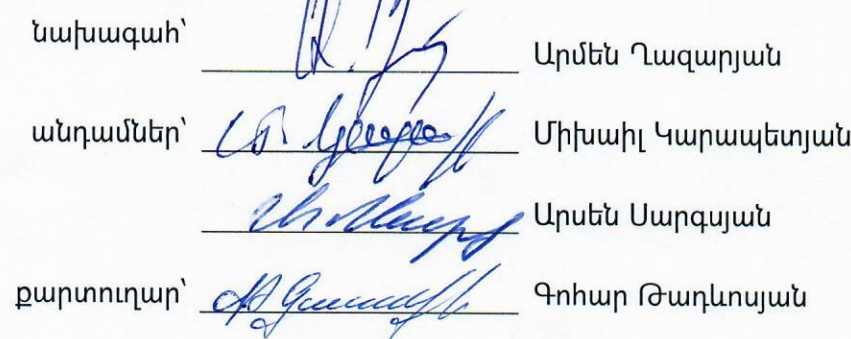 նախագահ՝ Արմեն Ղազարյան
անդամներ՝ Միխաիլ Կարապետյան
Արսեն Սարգսյան
քարտուղար՝ Գոհար Թադևոսյան